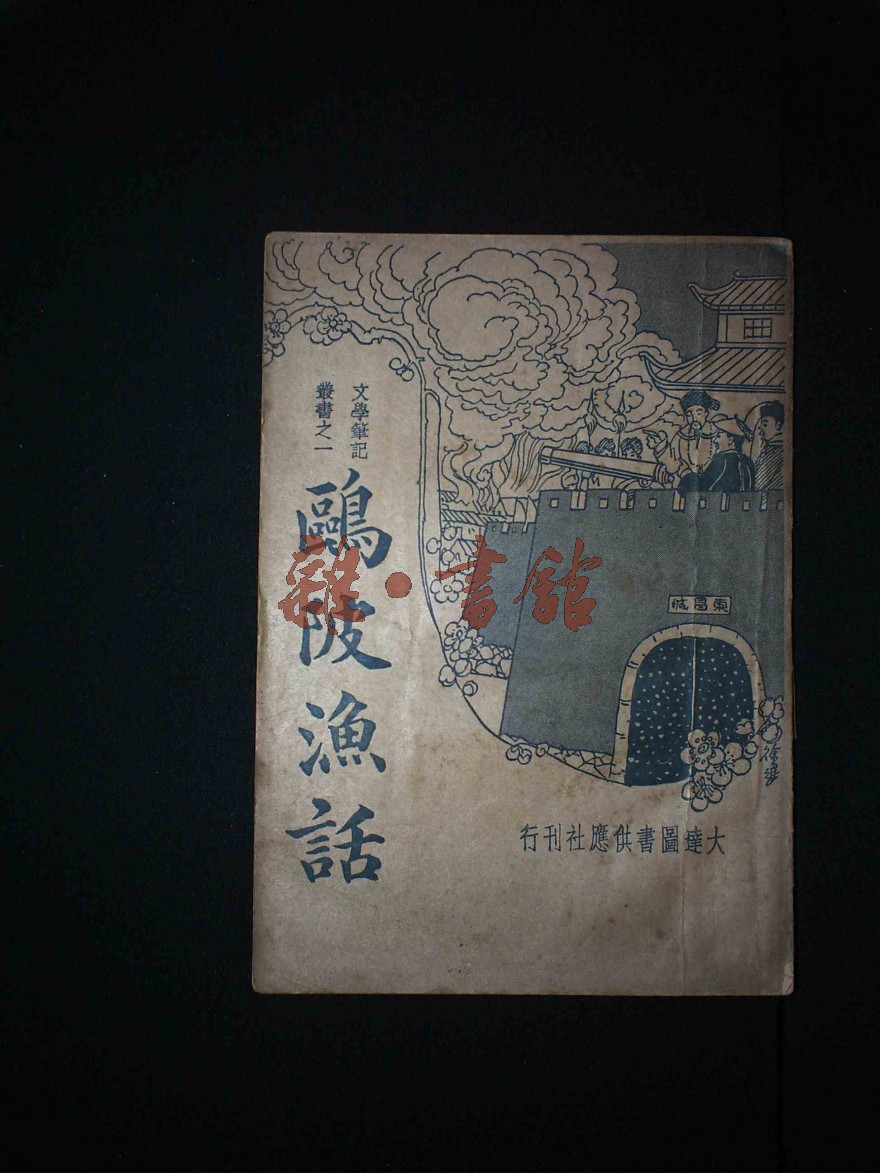 文學筆記
叢書之一
鷗陂漁話
東昌城
大達圖書供應社刊行
雜·書館